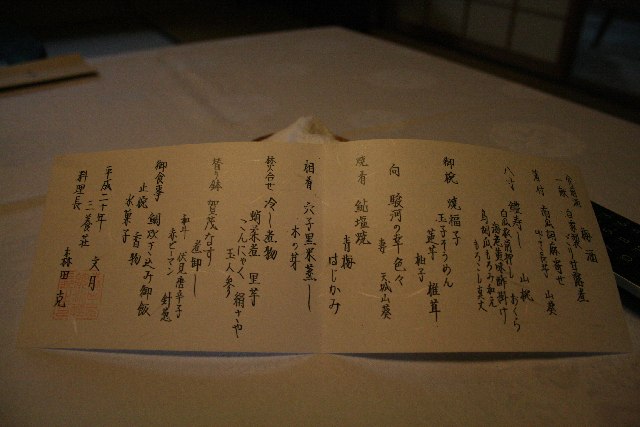 梅酒
山葵
八寸 鱧寿し 山桃
御椀 焼福子
玉子そうめん
蓮芋 椎茸
柚子
向 駿河の幸 色々
妻 天城山葵
焼肴 鮎塩焼
青梅
はじかみ
相肴 穴子黒米蒸し
木の芽
焚合せ 冷し煮物
蛸柔煮 里芋
こんにゃく 絹さや
玉人参
替り鉢 賀茂なす
煮卸し
伏見唐辛子
赤ピーマン 針葱
御食事 鯛炊き込み御飯
止椀 香物
水菓子
平成二十年 文月
三養荘
料理長 森田 克